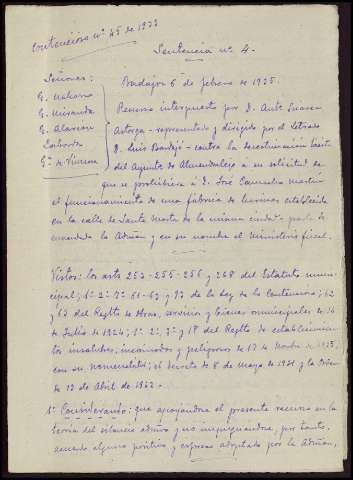 Contencioso nº 45 de 1933
Sentencia nº 4.
Señores:
Badajoz 6 de febrero de 1935.
G.
G. Miranda
G. Alarcón
Gª de Vinuesa
Recurso interpuesto por D. Antº Suarez
Astorga - representado y dirigido por el Letrado
D. Luis Bardají - contra la desestimación tácita
del Ayuntº de Almendralejo a su solicitud de
que se prohibiera a D. José Camacho Martín
el funcionamiento de una fábrica de harinas establecida
en la calle de Santa Marta de la misma ciudad - parte de
mandada la Admón y en su nombre el Ministerio fiscal.
Vistos: los arts 253-255-256 y 268 del Estatuto muni-
cipal; 1º 2º 7º 61-62 y 97 de la Ley de lo Contencioso; 62
y 63 del Reglto de Obras, servicios y bienes municipales de 14
de Julio de 1924; 1º 2º 3º y 18 del Reglto de establecimien-
tos insalubres, incómodos y peligrosos de 17 de Novbre de 1925,
con su nomenclator; el decreto de 8 de Mayo de 1931 y la Orden
de 12 de Abril de
1º Considerando: que apoyandose el presente recurso en la
teoría del silencio admvo y no impugnandose, por tanto,
acuerdo alguno positivo y expreso adoptado por la Admón,